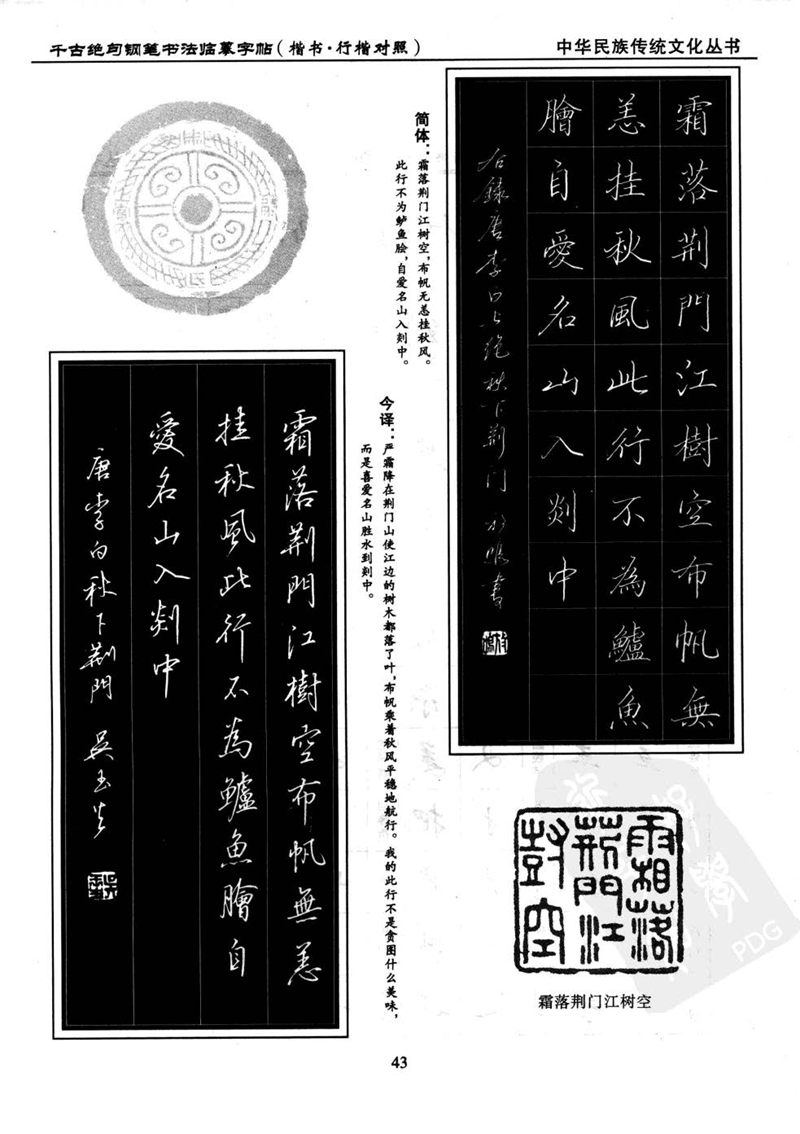 千古绝句钢笔书法临摹字帖(楷书·行楷对照)
中华民族传统文化丛书
霜落荆門江樹空布帆無
恙挂秋風此行不為鱸魚
膾自愛名山入剡中
右録唐李白七绝秋下荆门
简体：霜落荆门江树空，布帆无恙挂秋风。
此行不为鲈鱼脍，自爱名山入剡中。
今译：严霜降在荆门山使江边的树木都落了叶，布帆乘着秋风平稳地航行。我的此行不是贪图什么美味，
而是喜爱名山胜水到剡中。
霜落荆門江樹空布帆無恙
挂秋風此行不為鱸魚膾自
愛名山入剡中
唐李白秋下荆門 吴玉生
霜落
荆門江
樹空
霜落荆门江树空
PDG
43